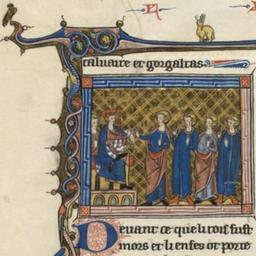 caluaire et gorgatras
Deuant ce que li rois fust
mors et li enfes ot porte